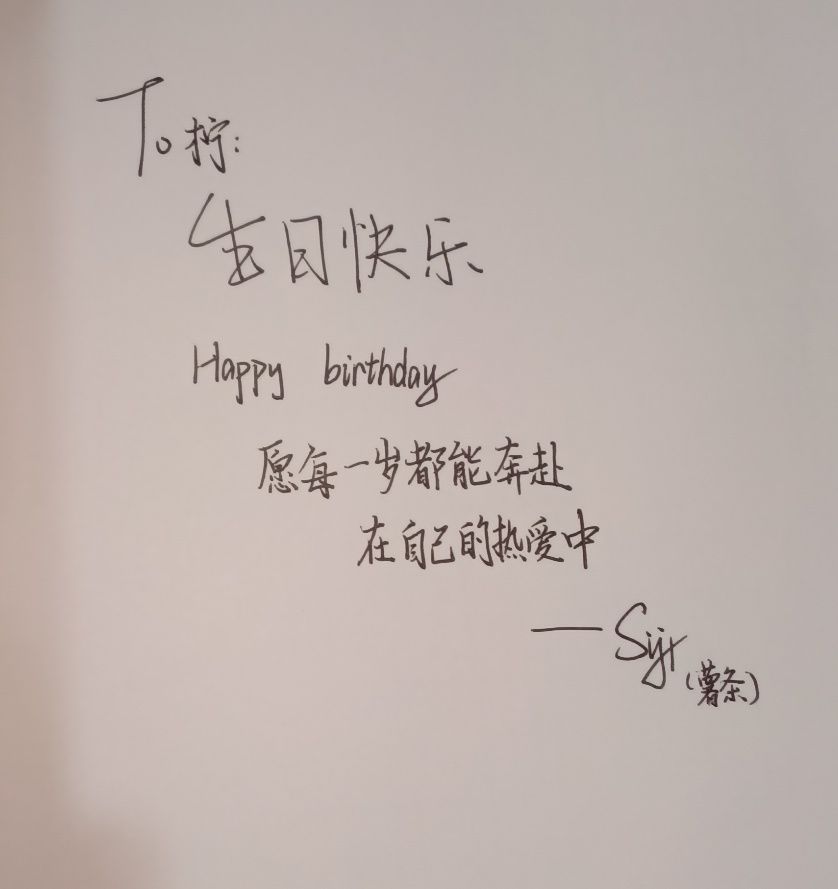 To 柠:
生日快乐
Happy birthday
愿每一岁都能奔赴
在自己的热爱中
——Sijt
(薯条)